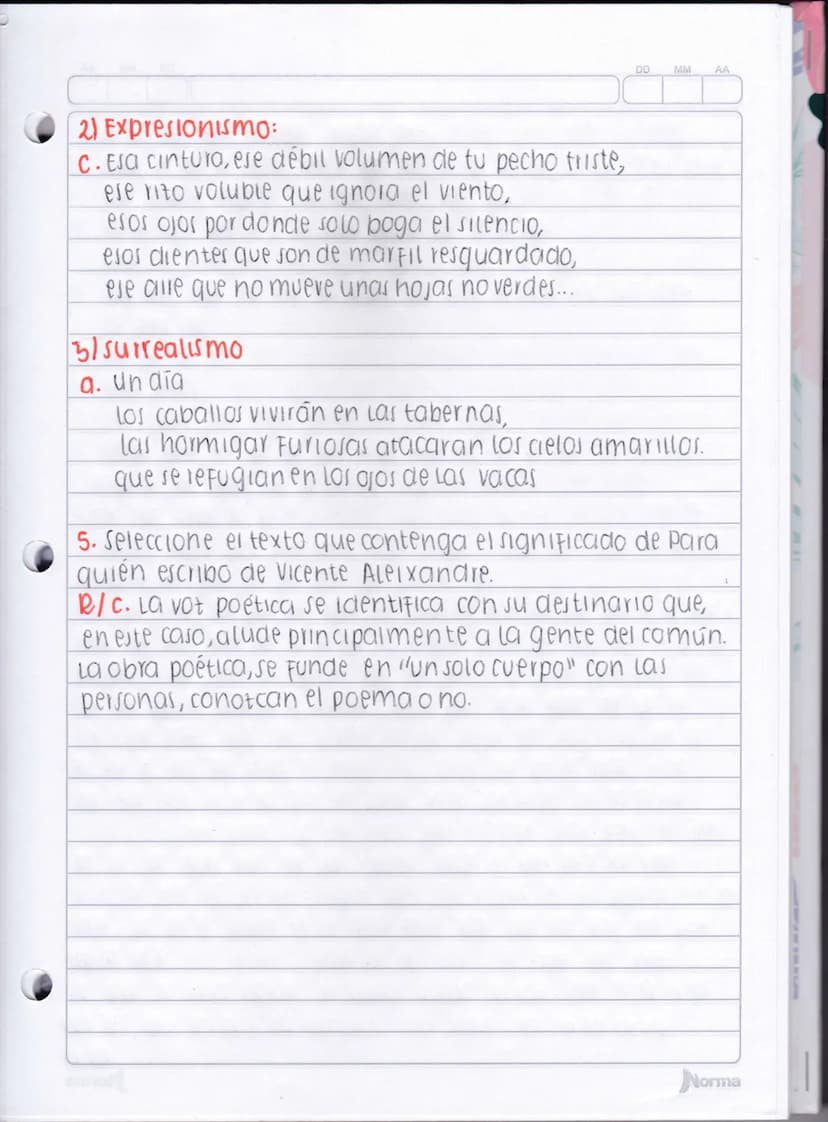 DD MM AA
2) Expresionismo:
c. Esa cintura, ese débil volumen de tu pecho triste,
ese rizo voluble que ignora el viento,
esos ojos por donde solo boga el silencio,
esos dientes que son de marfil resguardado,
ese aire que no mueve unas hojas no verdes...
3) surrealismo
a. un día
los caballos vivirán en las tabernas,
las hormigas furiosas atacaran los cielos amarillos.
que se refugian en los ojos de las vacas
5. Seleccione el texto que contenga el significado de Para
quién escribo de Vicente Aleixandre.
R/c. La voz poética se identifica con su destinario que,
en este caso, alude principalmente a la gente del común.
La obra poética, se funde en "un solo cuerpo" con las
personas, conozcan el poema o no.
Norma